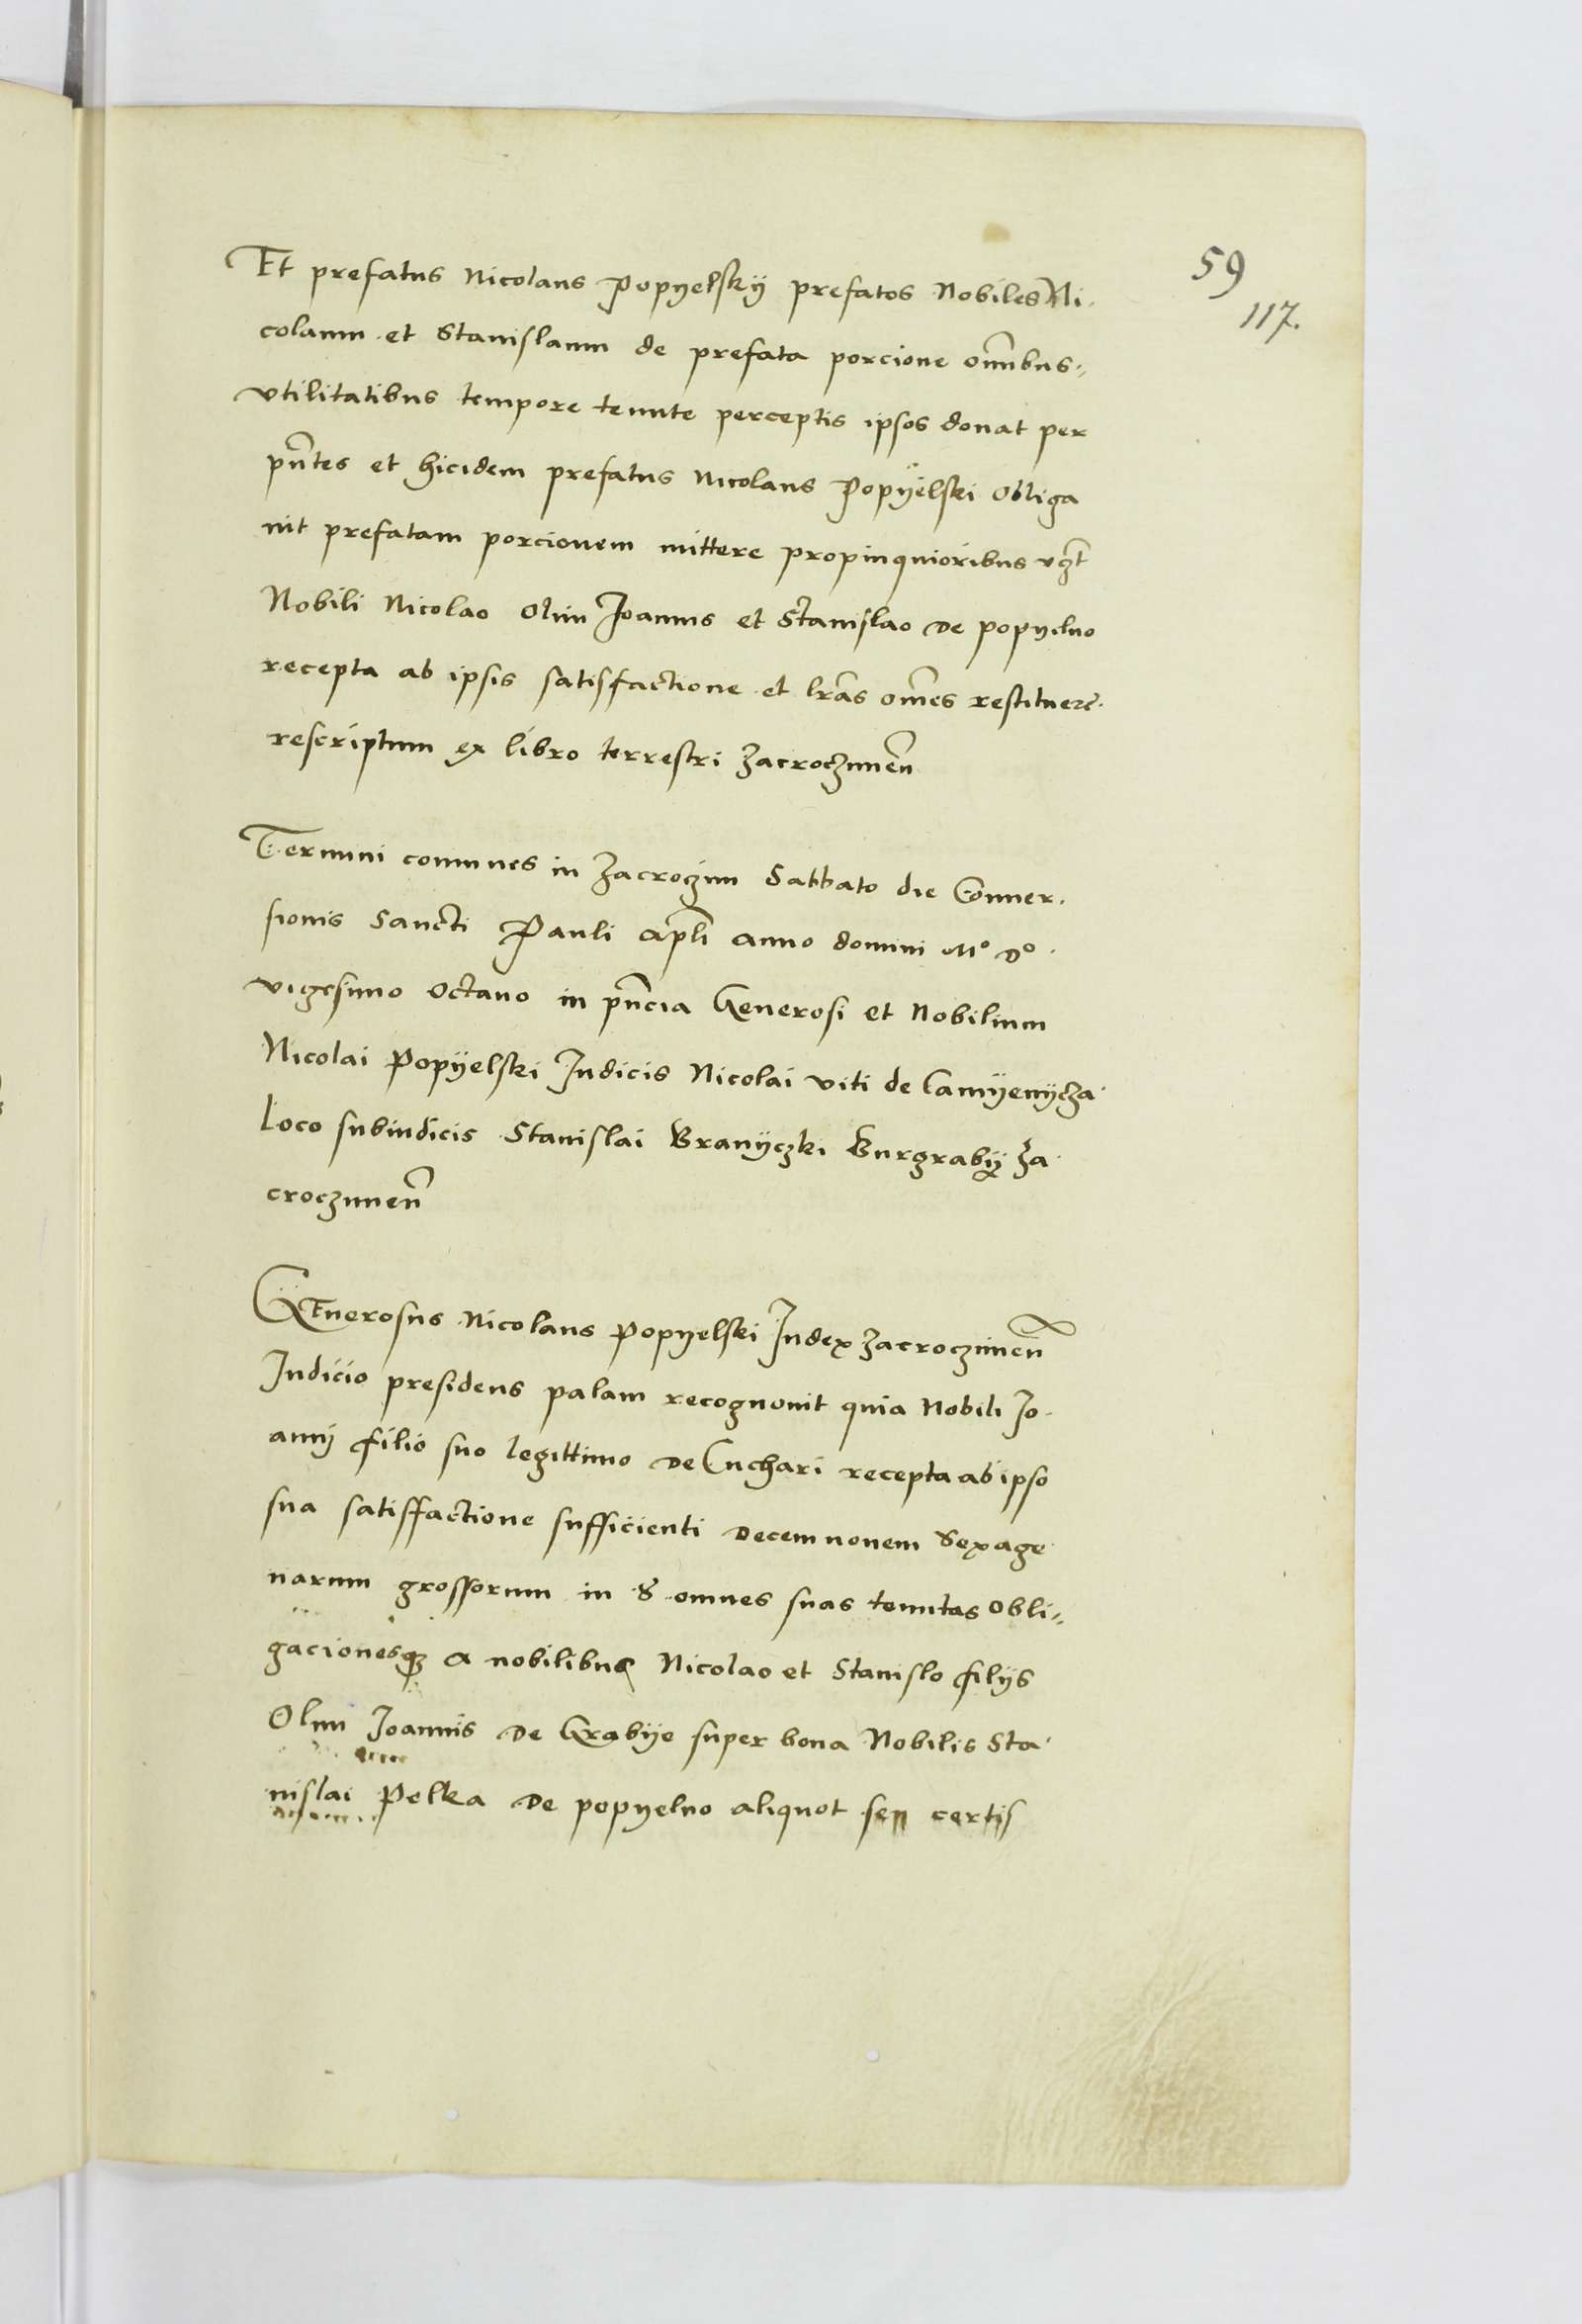 59
117.
Et prefatus Nicolaus Popyelskÿ prefatos Nobiles Ni-
colaum et Stanislaum de prefata porcione om̃ibus
vtilitatibus tempore tenute perceptis ipsos donat per
pñtes et hicidem prefatus Nicolaus Popÿelski Obliga
uit prefatam porcionem mittere propinquioribus vz̃t
Nobili Nicolao Olim Joannis et Stanislao de popyelno
recepta ab ipsis satisfactione et lr̃as om̃es restituere
rescriptum ex libro terrestri Zacroczimeñ
Termini comunes in Zacroczim Sabbato die Conuer-
sionis Sancti Pauli apl̃i anno domini Mº dº
vigesimo Octauo in pñcia Generosi et Nobilium
Nicolai Popÿelski Judicis Nicolai viti de Camÿenÿcza
Loco subiudicis Stanislai Branÿczki Burgrabÿ Za
croczimeñ
GEnerosus Nicolaus Popyelski Judex Zacroczimeñ
Judicio presidens palam recognouit quia Nobili Jo-
anni filio suo legittimo de Cuchari recepta ab ipso
sua satisffactione sufficienti decem nouem Sexage
narum grossorum in 8 omnes suas tenutas Obli-
gacionesqȝ a nobilibus Nicolao et Stanislo filÿs
Olim Joannis de Grabÿe super bona Nobilis Sta
nislai Pelka de popyelno aliquot seu certis